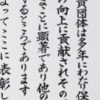 貴団体は多年にわたり保
の向上に貢献されその
ことに顕著であり他の
するところであります
よってここに表彰し